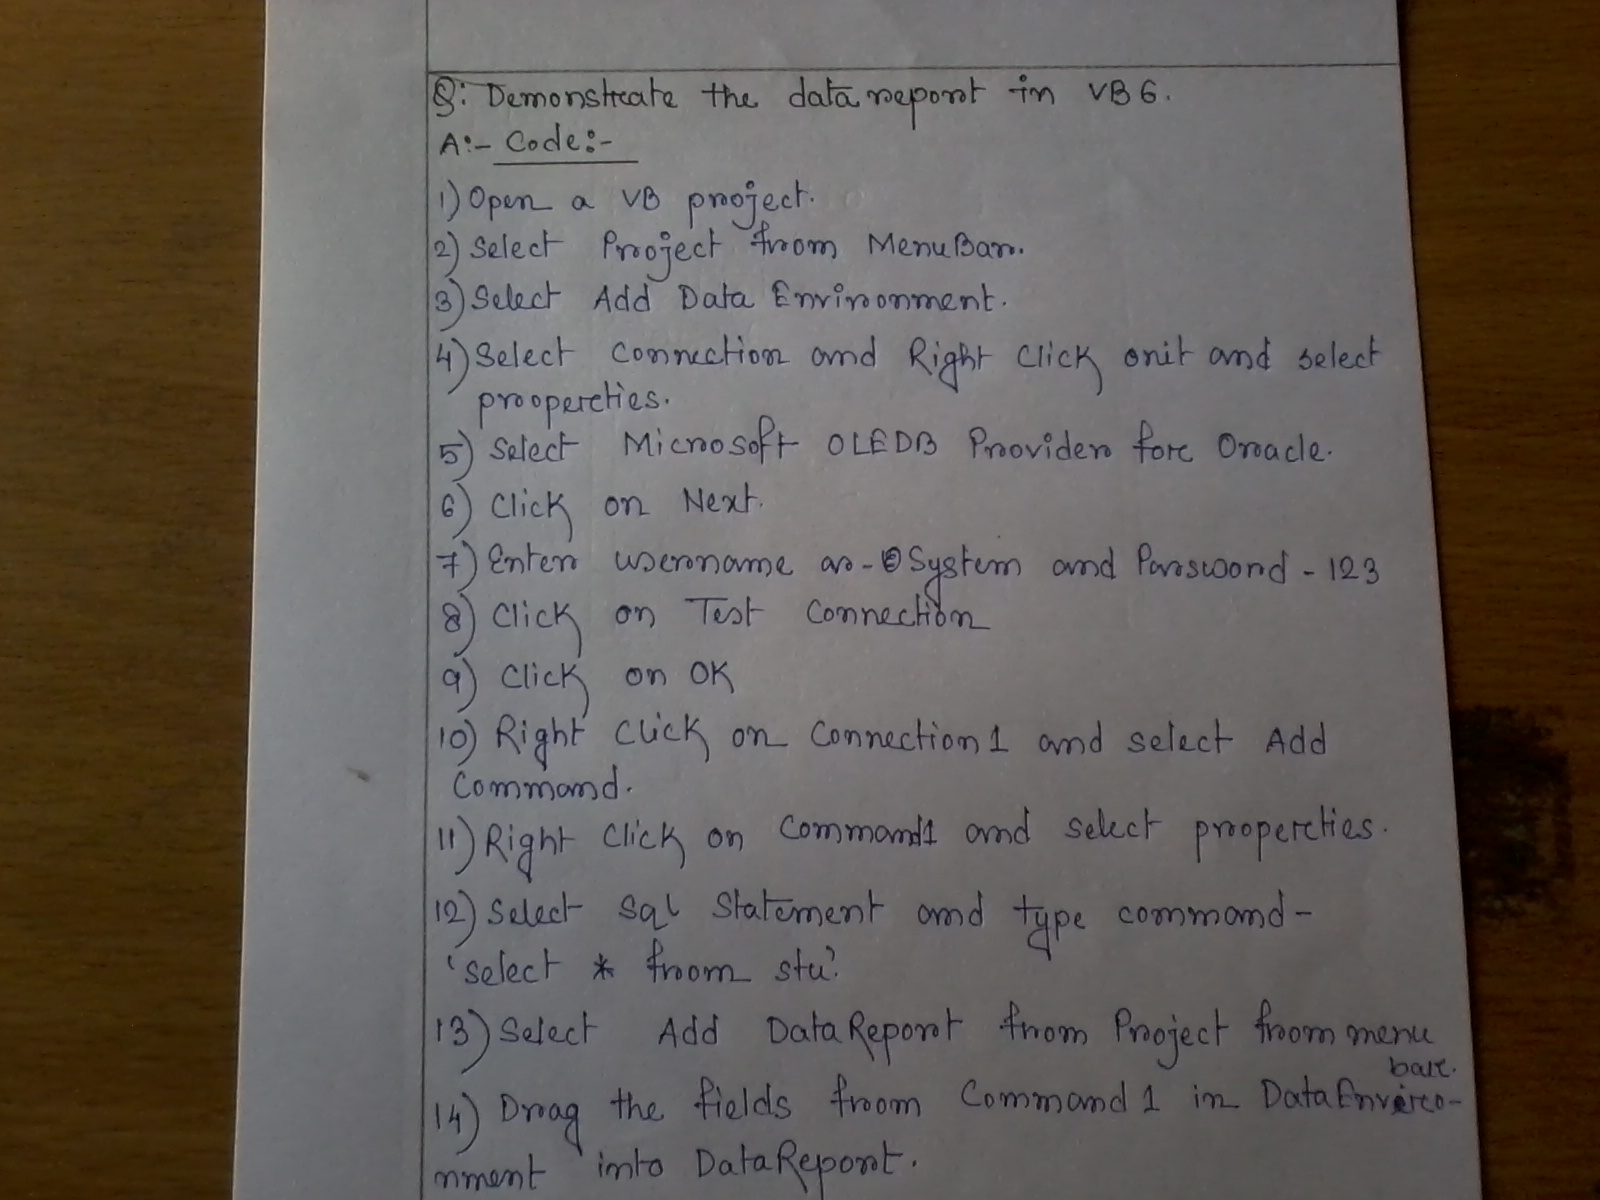 Q: Demonstrate the data report in VB 6.
A:- Code:-
1) Open a VB project.
2) Select Project from MenuBar.
3) Select Add Data Environment.
4) Select Connection and Right Click onit and select
properties.
5) Select Microsoft OLEDB Provider for Oracle.
6) Click on Next.
7) Enter username as - System and Password - 123
8) Click on Test Connection
9) Click on OK
10) Right Click on Connection1 and select Add
Command.
11) Right Click on Command1 and select properties.
12) Select Sql Statement and type command-
'select * from stu'.
13) Select Add DataReport from Project from menu
bar.
14) Drag the fields from Command1 in DataEnviro-
nment into DataReport.